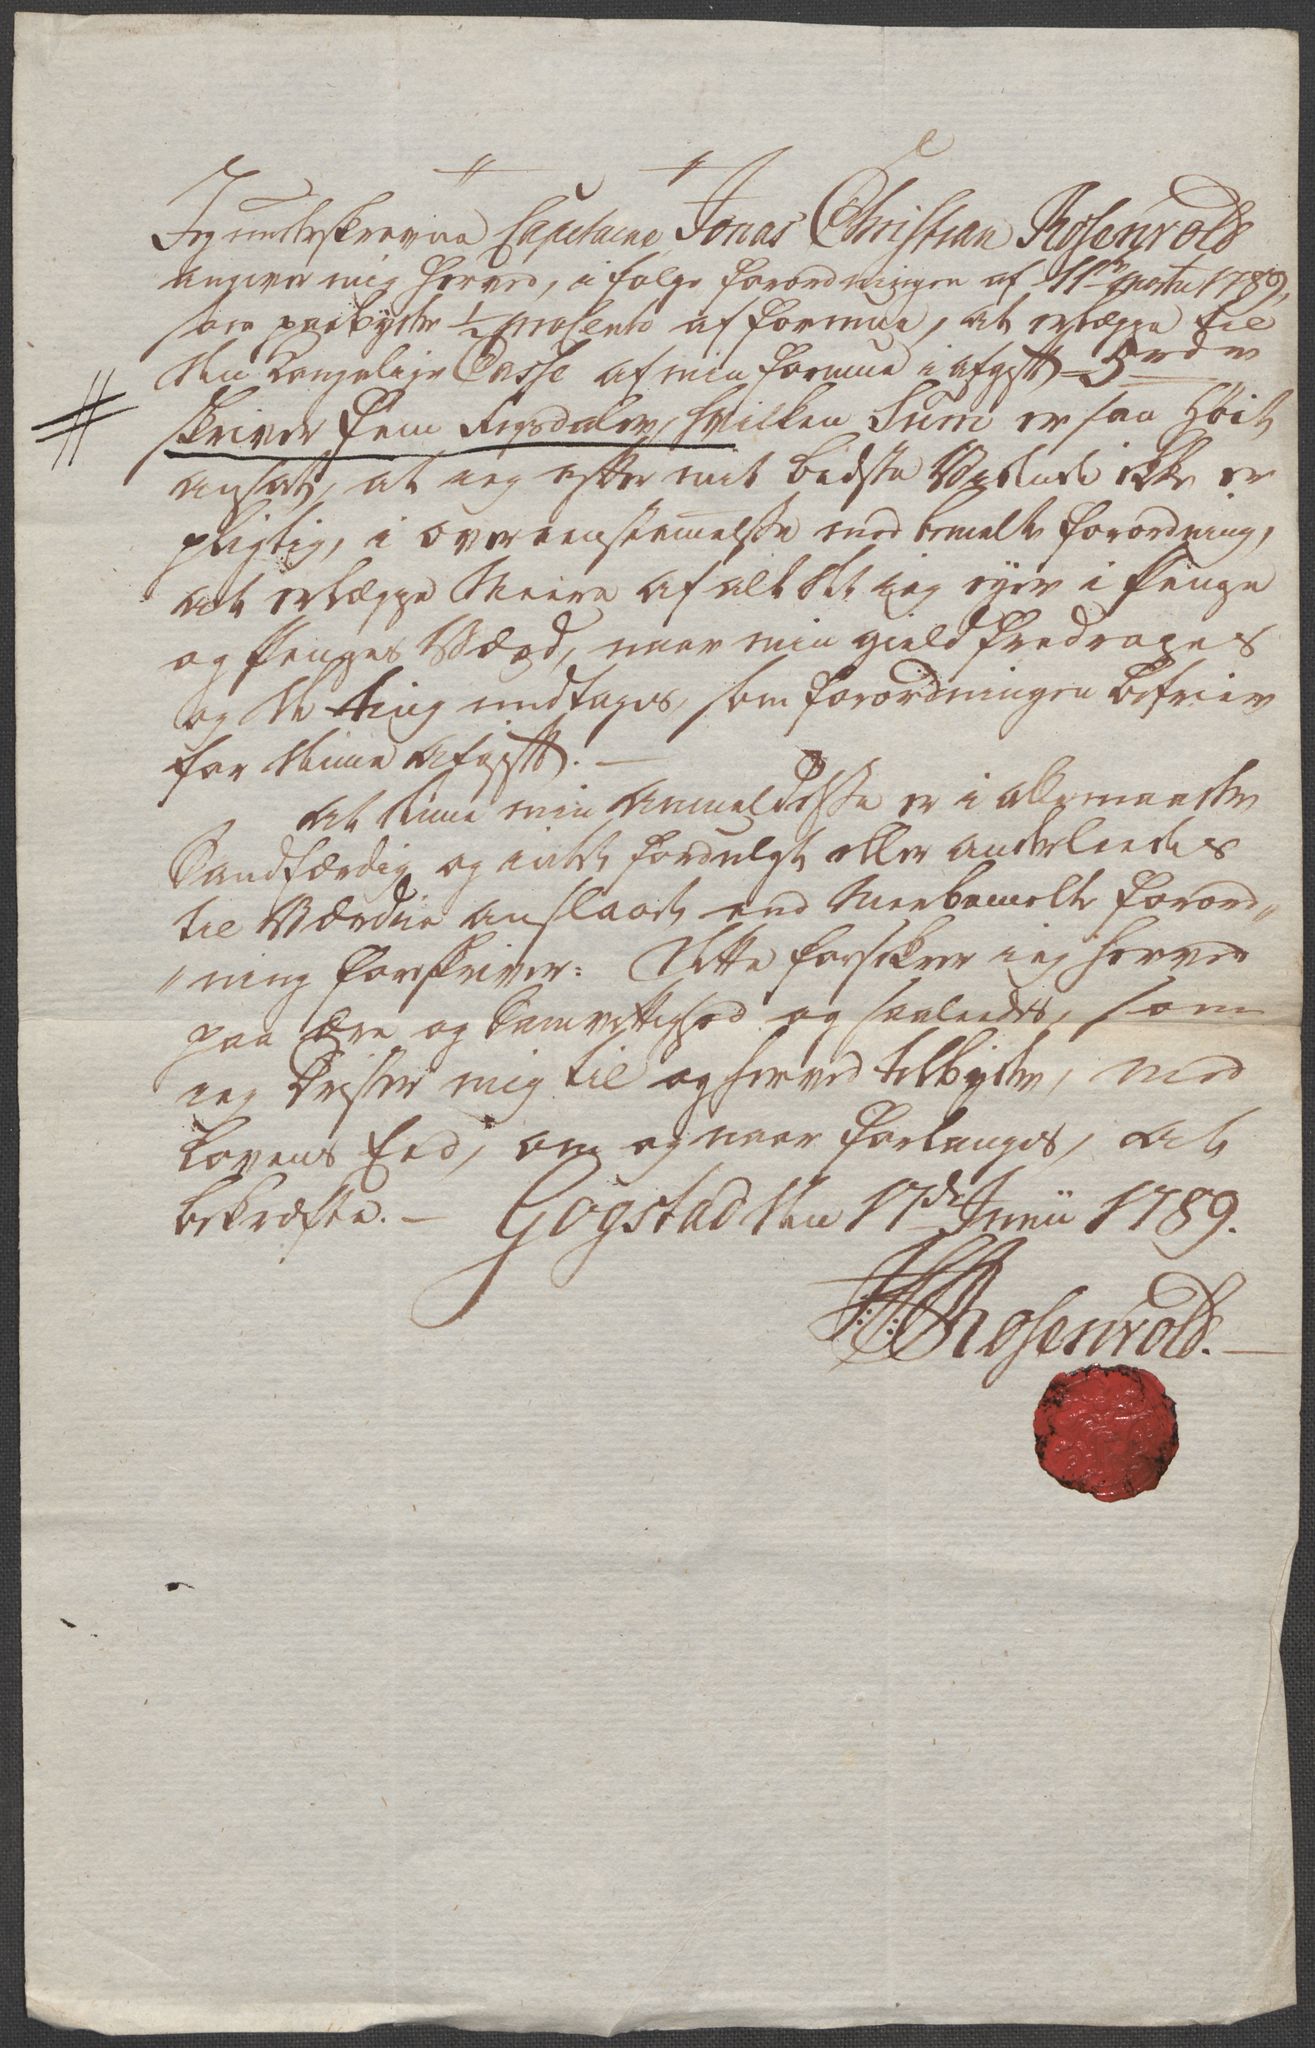 Jeg underskrevne Capitaine Jonas Christian Rosenvold
angiver mig herved, i følge Forordningen af 11te Marty 1789,
som paabyder 1/2 procento af Formue, at erlægge til
den Kongelige Casse af min Formue i afgift 5 rdr
skriver Fem Rigsdaler, hvilken Sum er saa høit
ansat, at ieg efter mit bedste Vidende ikke er
pligtig, i overeenstemmelse med bemelte Forordning,
at erlægge Meere af alt det ieg eyer i Penge
og Penges Værd, naar min gield fradrages
og de ting undtages, som Forordningen befrier
for denne Afgift. —
At denne min Anmeldelse er i alle maader
Sandfærdig og intet fordulgt eller anderledes
til Værdie anslaaet end Meerbemelte Forord„
„ning Forskriver: Dette forsikrer ieg herved
paa Ære og Samvittighed og saaledes, som
ieg trøster mig til og herved tilbyder, med
Lovens Eed, om og naar forlanges, at
bekræfte. — Gogstad den 17de Junii 1789.
J: C: Rosenvold. —